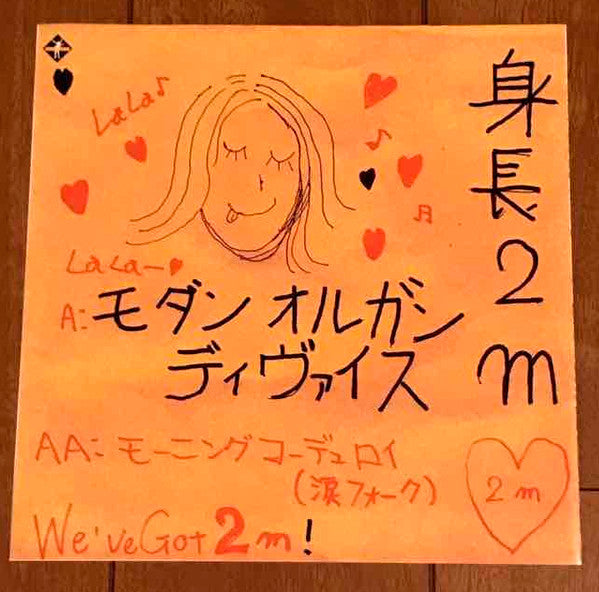 身長2m
LaLa♪
LaLaー♥
A: モダン オルガン
ディヴァイス
AA: モーニングコーデュロイ
(涙フォーク)
2m
We'veGot 2m!